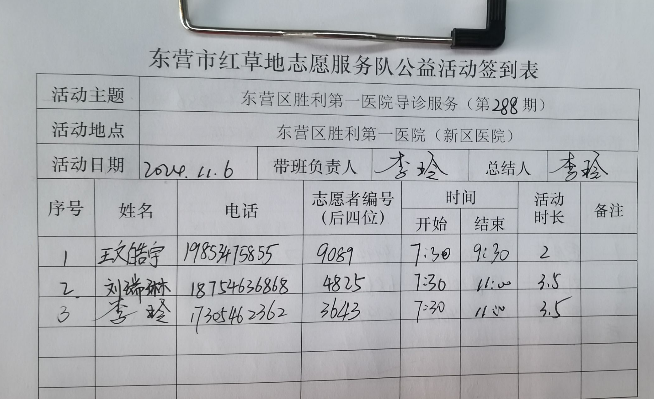 东营市红草地志愿服务队公益活动签到表
活动主题 东营区胜利第一医院导诊服务（第288期）
活动地点 东营区胜利第一医院（新区医院）
活动日期 2024.11.6 带班负责人 李玲 总结人 李玲
序号 姓名 电话 志愿者编号（后四位） 时间 开始 结束 活动时长 备注
1 王文皓宇 19853475855 9089 7:30 9:30 2
2 刘瑞琳 18754636868 4825 7:30 11:00 3.5
3 李玲 17305462362 3643 7:30 11:00 3.5